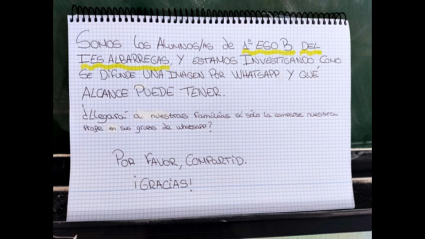 Somos los alumnos/as de 1º ESO B del
IES ALBARREGAS, y estamos investigando cómo
se difunde una imagen por Whatsapp y qué
alcance puede tener.
¿Llegará a nuestras familias si sólo la comparte nuestra
profe en sus grupos de whatsapp?
Por favor, compartid.
¡Gracias!